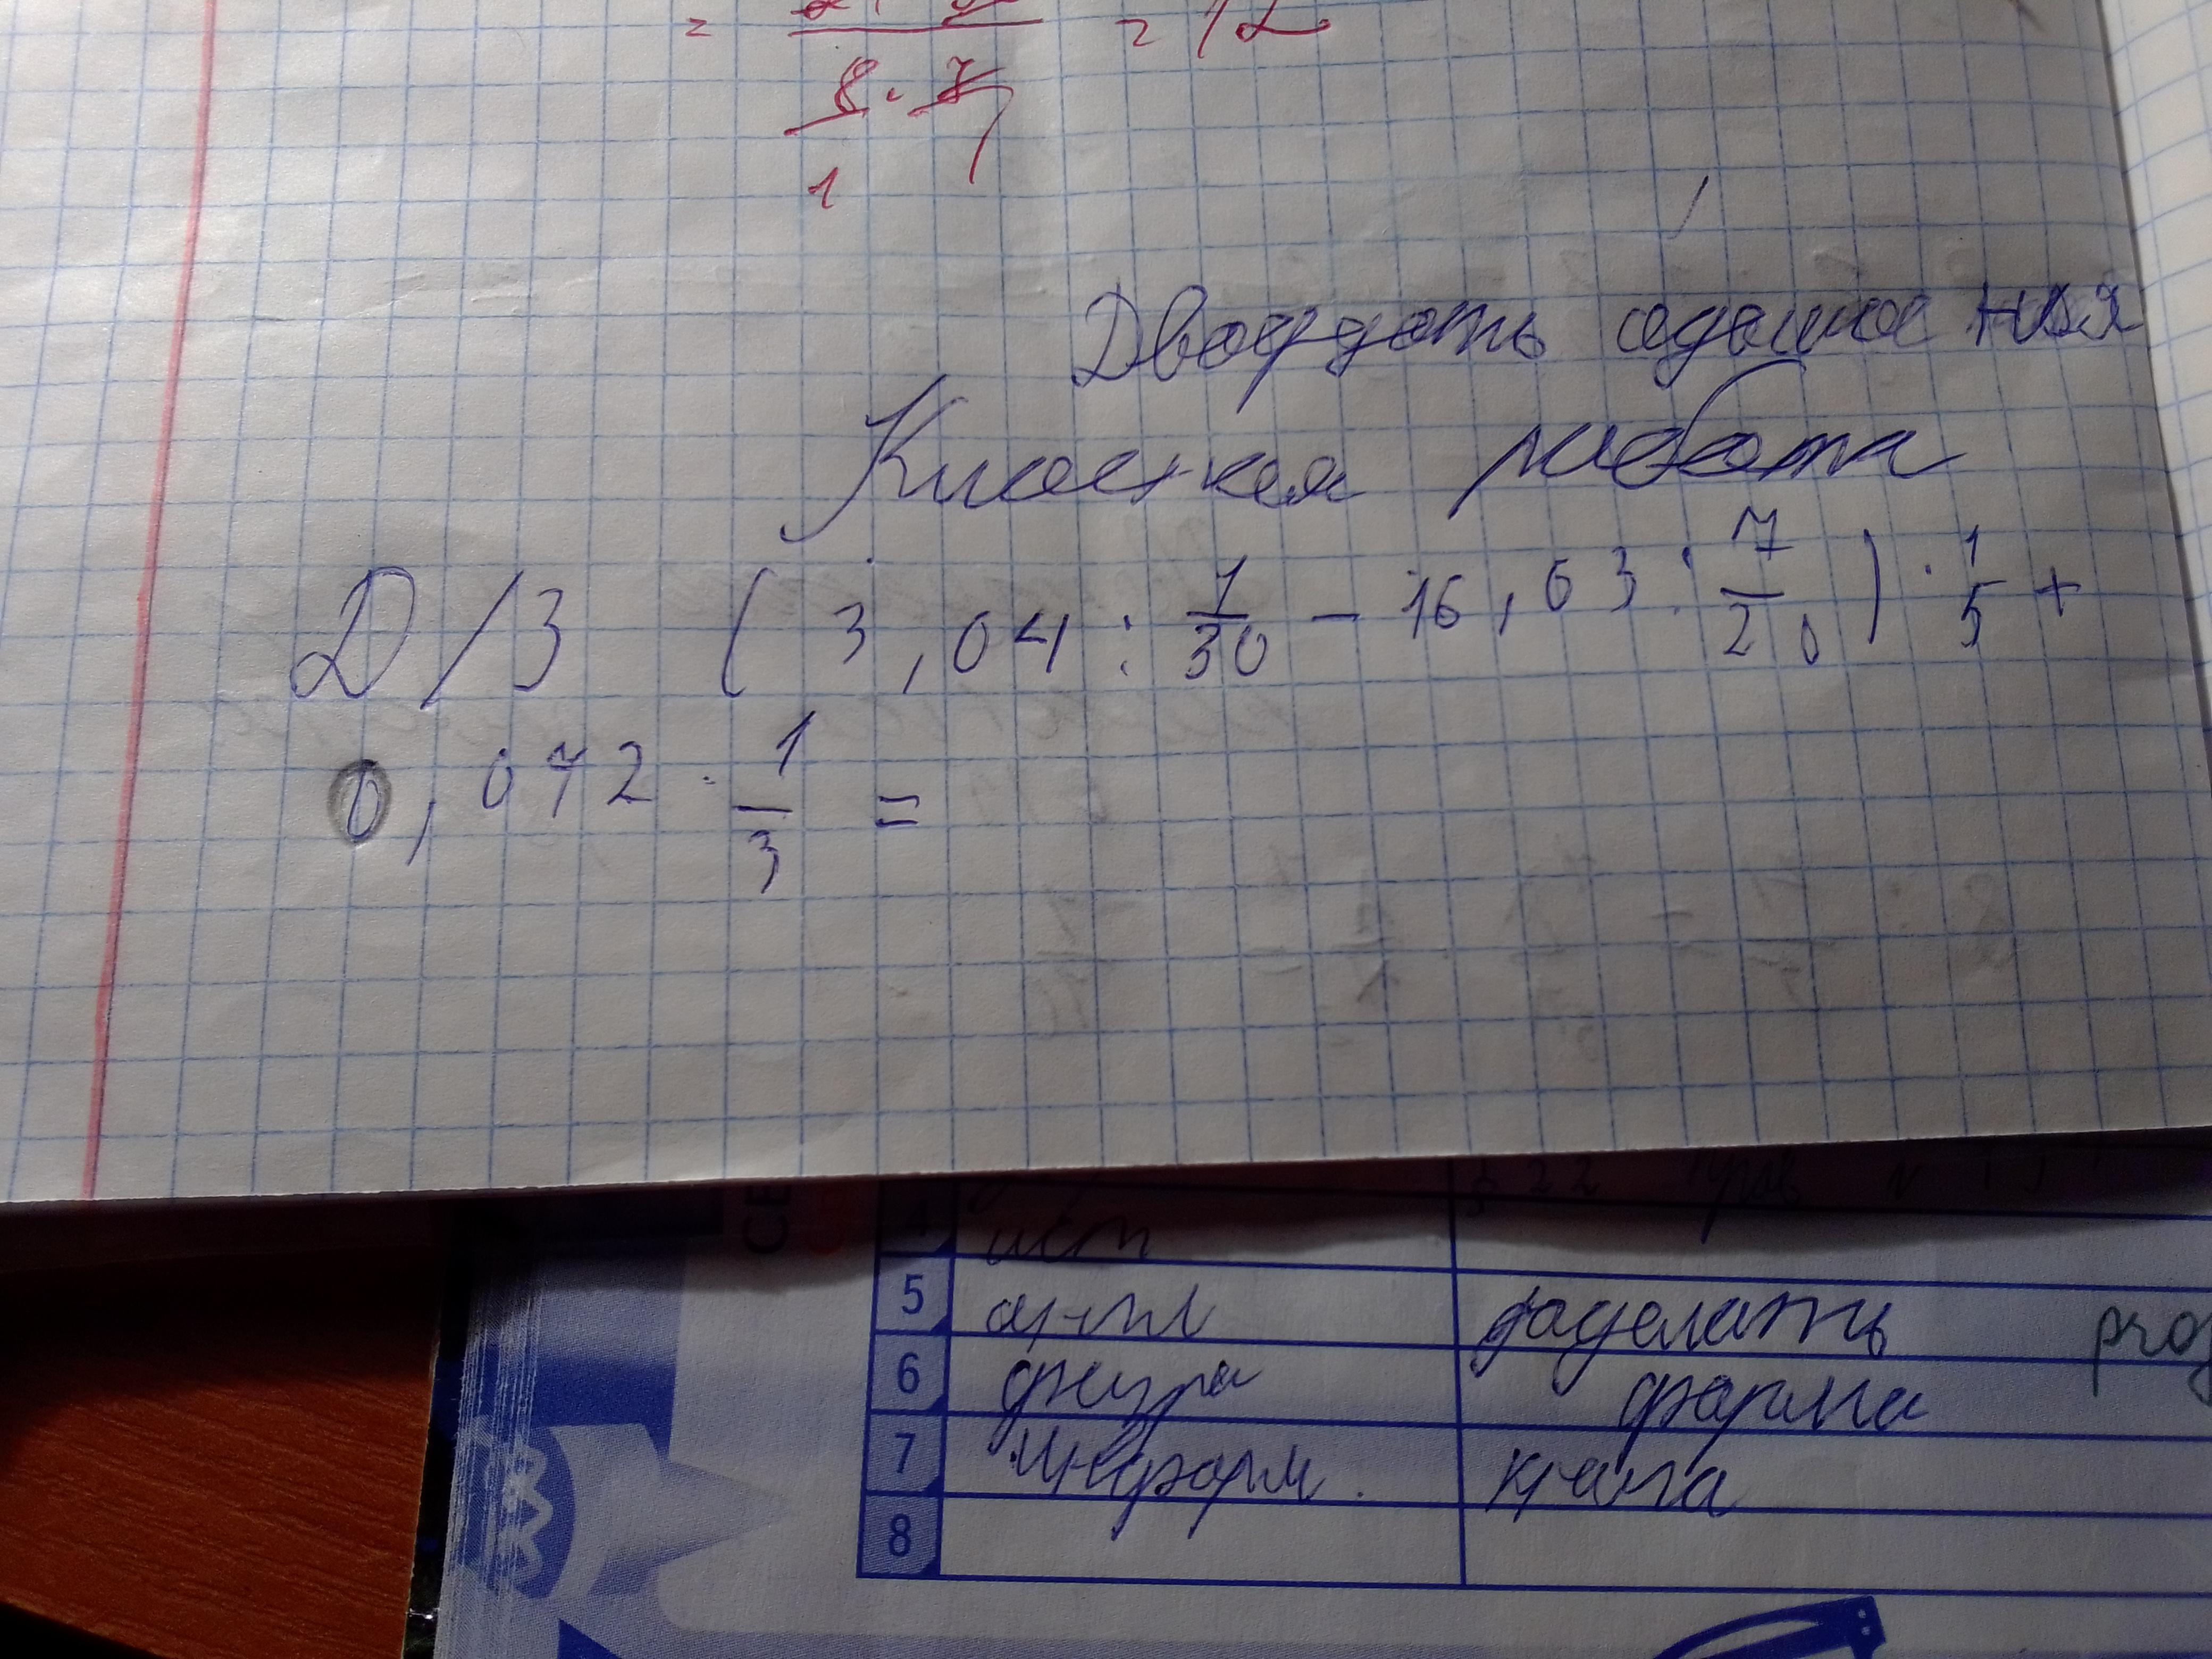 = 8 · 7 = 12
1
Двадцать седьмое ноя
Классная работа
Д/З (3,04 : 1/30 - 16,03 : 7/20) · 1/5 +
0,072 · 1/3 =
4 ист
5 англ доделать proj
6 физра форма
7 информ. книга
8